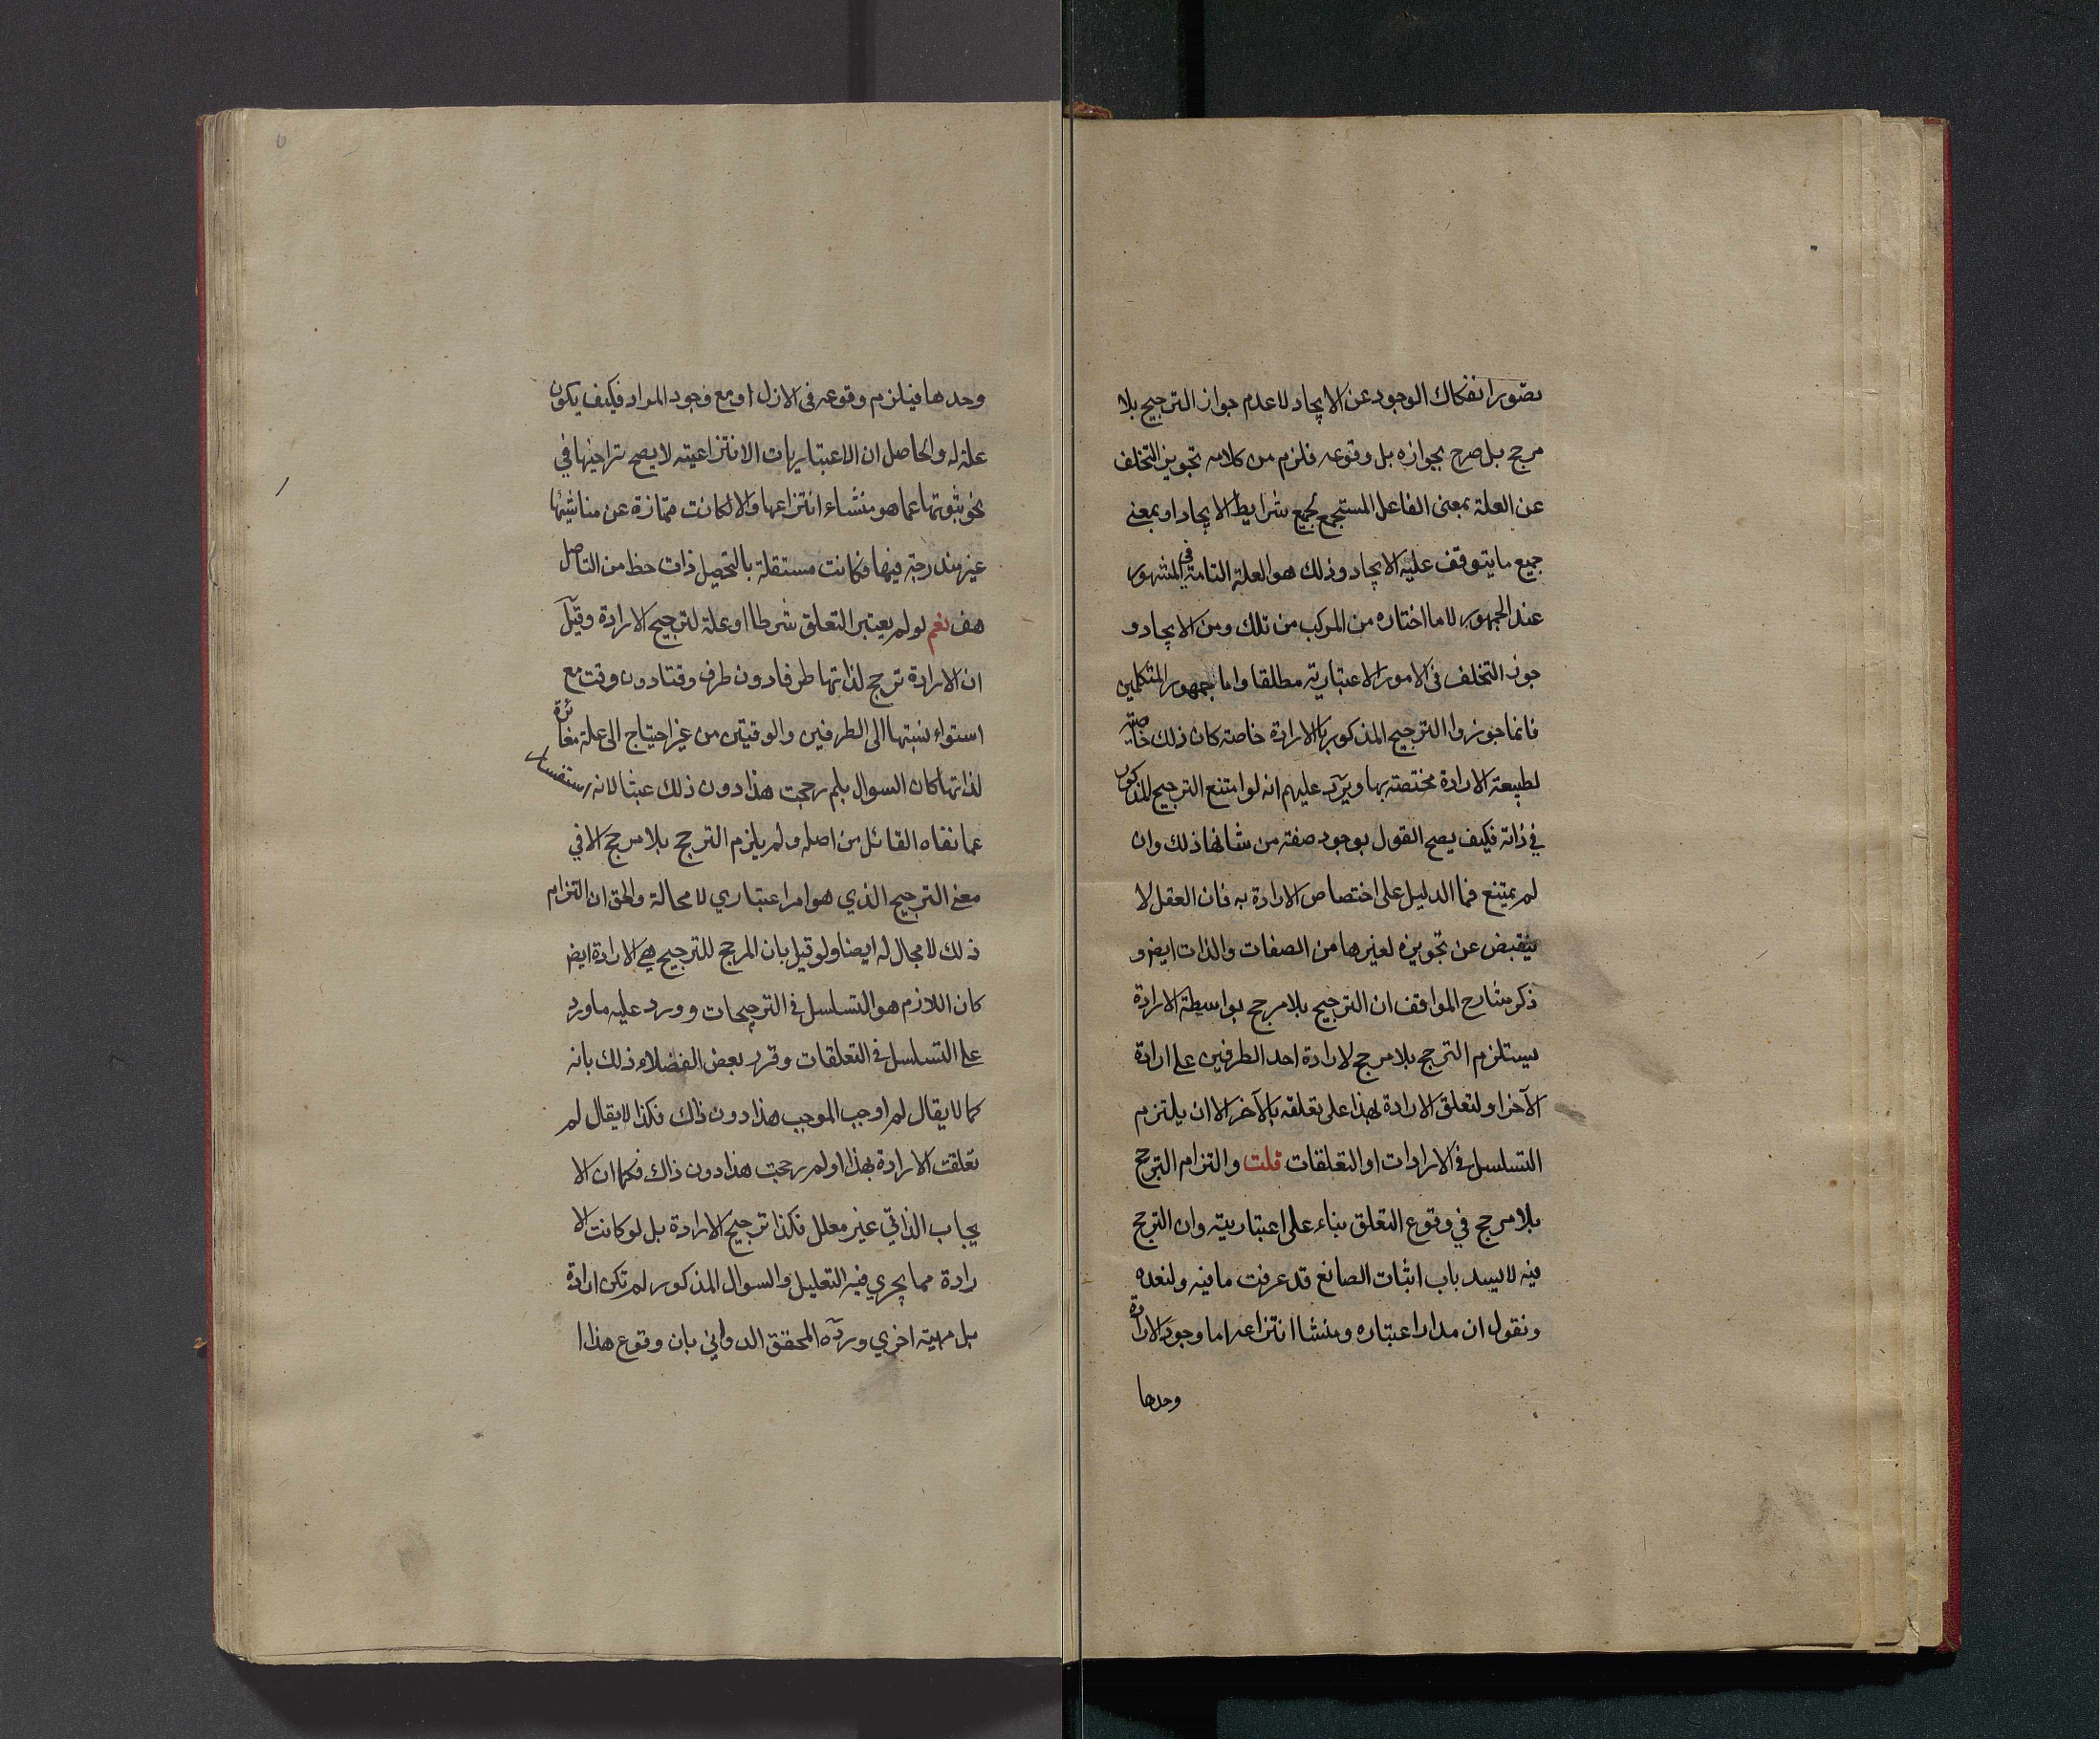 تصور انفكاك الوجود عن الايجاد لا عدم جواز الترجيح بلا
مرجح بل صرح بجوازه بل وقوعه فلزم من كلامه تجويز التخلف
عن العلة بمعنى الفاعل المستجمع لجميع شرايط الايجاد او بمعنى
جميع ما يتوقف عليه الايجاد وذلك هو العلة التامة في المشهور
عند الجمهور لا ما اختاره من المركب من تلك ومن الايجاد و
جوز التخلف فى الامور الاعتبارية مطلقا واما جمهور المتكلمين
فانما جوزوا الترجيح المذكور بالارادة خاصة كان ذلك خاصته
لطبيعة الارادة مختصة بها ويرد عليهم انه لو امتنع الترجيح المذكور
في ذاته فكيف يصح القول بوجود صفة من شانها ذلك وان
لم يمتنع فما الدليل على اختصاص الارادة به فان العقل لا
ينقبض عن تجويزه لغيرها من الصفات والذات ايضا و
ذكر شارح المواقف ان الترجيح بلا مرجح بواسطة الارادة
يستلزم الترجح بلا مرجح لارادة احد الطرفين على ارادة
الآخر او لتعلق الارادة بهذا على تعلقه بالآخر الا ان يلتزم
التسلسل فى الارادات او التعلقات قلت والتزام الترجح
بلا مرجح في وقوع التعلق بناء على اعتباريته وان الترجح
فيه لا يسد باب اثبات الصانع قد عرفت ما فيه ولنعده
ونقول ان مدار اعتباره ومنشا انتزاعه اما وجود الارادة
وحدها
وحدها فيلزم وقوعه فى الازل او مع وجود المراد فكيف يكون
علة له والحاصل ان الاعتباريات الانتزاعية لا يصح تراخيها في
نحو ثبوتها عما هو منشاء انتزاعها والا لكانت ممتازة عن مناشيئها
غير مندرجة فيها فكانت مستقلة بالتحصيل ذات حظ من التاصل
هف نعم لو لم يعتبر التعلق شرطا او علة لترجيح الارادة وقيل
ان الارادة ترجح لذاتها طرفا دون طرف وقتا دون وقت مع
استواء نسبتها الى الطرفين والوقتين من غير احتياج الى علة مغائرة
لذاتها كان السوال بلم رجحت هذا دون ذلك عبثا لانه استفسار
عما نفاه القائل من اصله ولم يلزم الترجح بلا مرجح الا في
معنى الترجيح الذي هو امر اعتباري لا محالة والحق ان التزام
ذلك لا مجال له ايضا ولو قيل بان المرجح للترجيح هي الارادة ايضا
كان اللازم هو التسلسل فى الترجيحات وورد عليه ما ورد
على التسلسل فى التعلقات وقرر بعض الفضلاء ذلك بانه
كما لا يقال لم اوجب الموجب هذا دون ذاك فكذا لا يقال لم
تعلقت الارادة بهذا او لم رجحت هذا دون ذاك فكما ان الا
يجاب الذاتي غير معلل فكذا ترجيح الارادة بل لو كانت الا
رادة مما يجري فيه التعليل والسوال المذكور لم تكن ارادة
بل مهية اخري ورده المحقق الدواني بان وقوع هذا ا